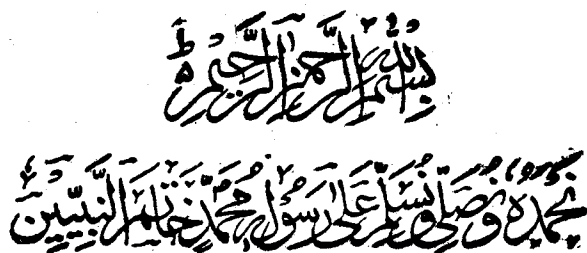 بِسْمِ اللهِ الرَّحْمٰنِ الرَّحِيْمِ ط
نَحْمَدُهٗ وَنُصَلِّیْ وَنُسَلِّمُ عَلٰی رَسُوْلِهٖ مُحَمَّدٍ خَاتَمِ النَّبِيِّيْنَ